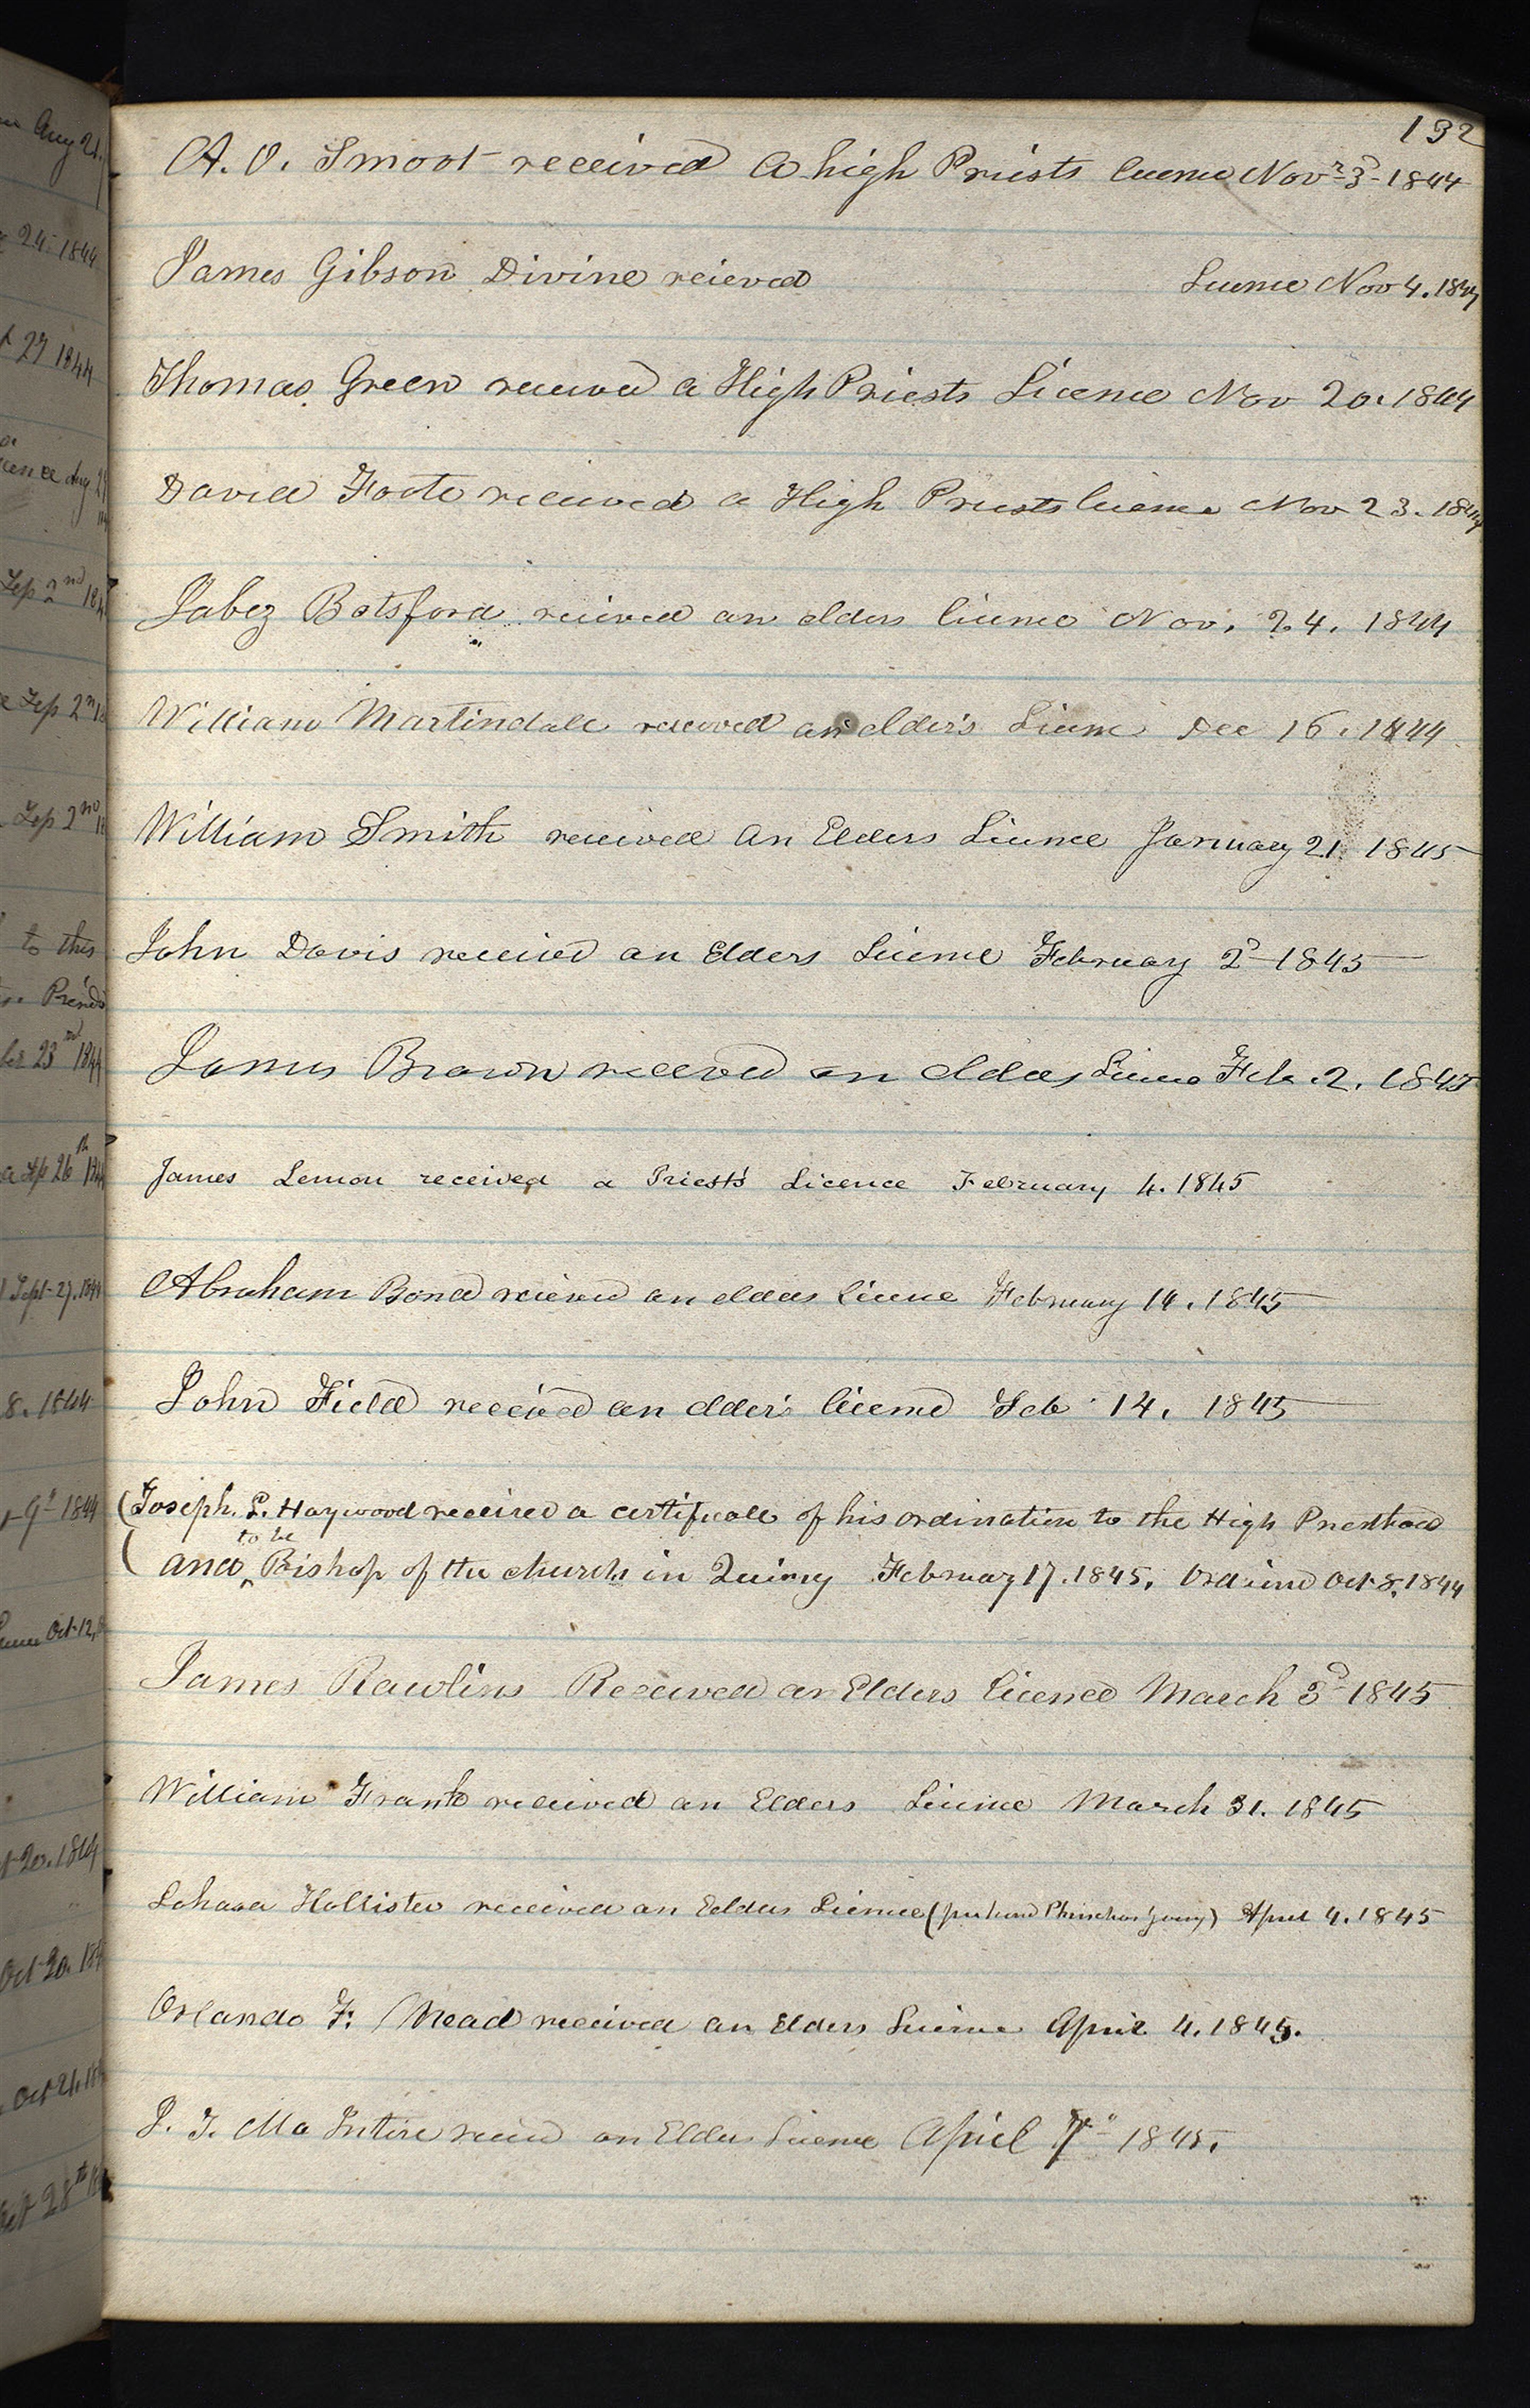 132
A. O. Smoot received a high Priests licence Novr 3d 1844
James Gibson Divine reieved Licence Nov 4. 1844
Thomas Green received a High Priests Licence Nov 20. 1844
David Foote received a High Priests licence Nov 23. 1844
Jabez Botsford reieved an elders licence Nov. 24. 1844
William Martindale received an elder's Licence Dec 16. 1844
William Smith received an Elders Licence January 21. 1845
John Davis received an Elders Licence February 2d 1845
James Brown receved an elders Licence Feb. 2. 1845
James Lemon received a Priest's Licence February 4. 1845
Abraham Bond reieved an elders licence February 14. 1845
John Field received an elder's licence Feb 14. 1845
Joseph. L. Haywood received a certificate of his ordination to the High Priesthood
and to be Bishop of the church in Quincy February 17. 1845. Ordained Oct. 8. 1844
James Rawlins Received an Elders licence March 3d 1845
William Frank received an Elders Licence March 31. 1845
Hollister received an Eelders Licence (per hand Phinehas Young) April 4. 1845
Orlando F. Mead received an Elders Licence April 4. 1845.
J. T. Mc Intire an Elders Licence April 7" 1845.
Aug 21.
24 1844
27 1844
Aug 29
Sep 2nd 184
Sep 2nd
Sep 2nd
to this
23rd 1844
26th 1844
Sept 27. 1844
8. 1844
9" 1844
Oct 12,
20. 1844
Oct 20. 184
Oct 24. 184
28th